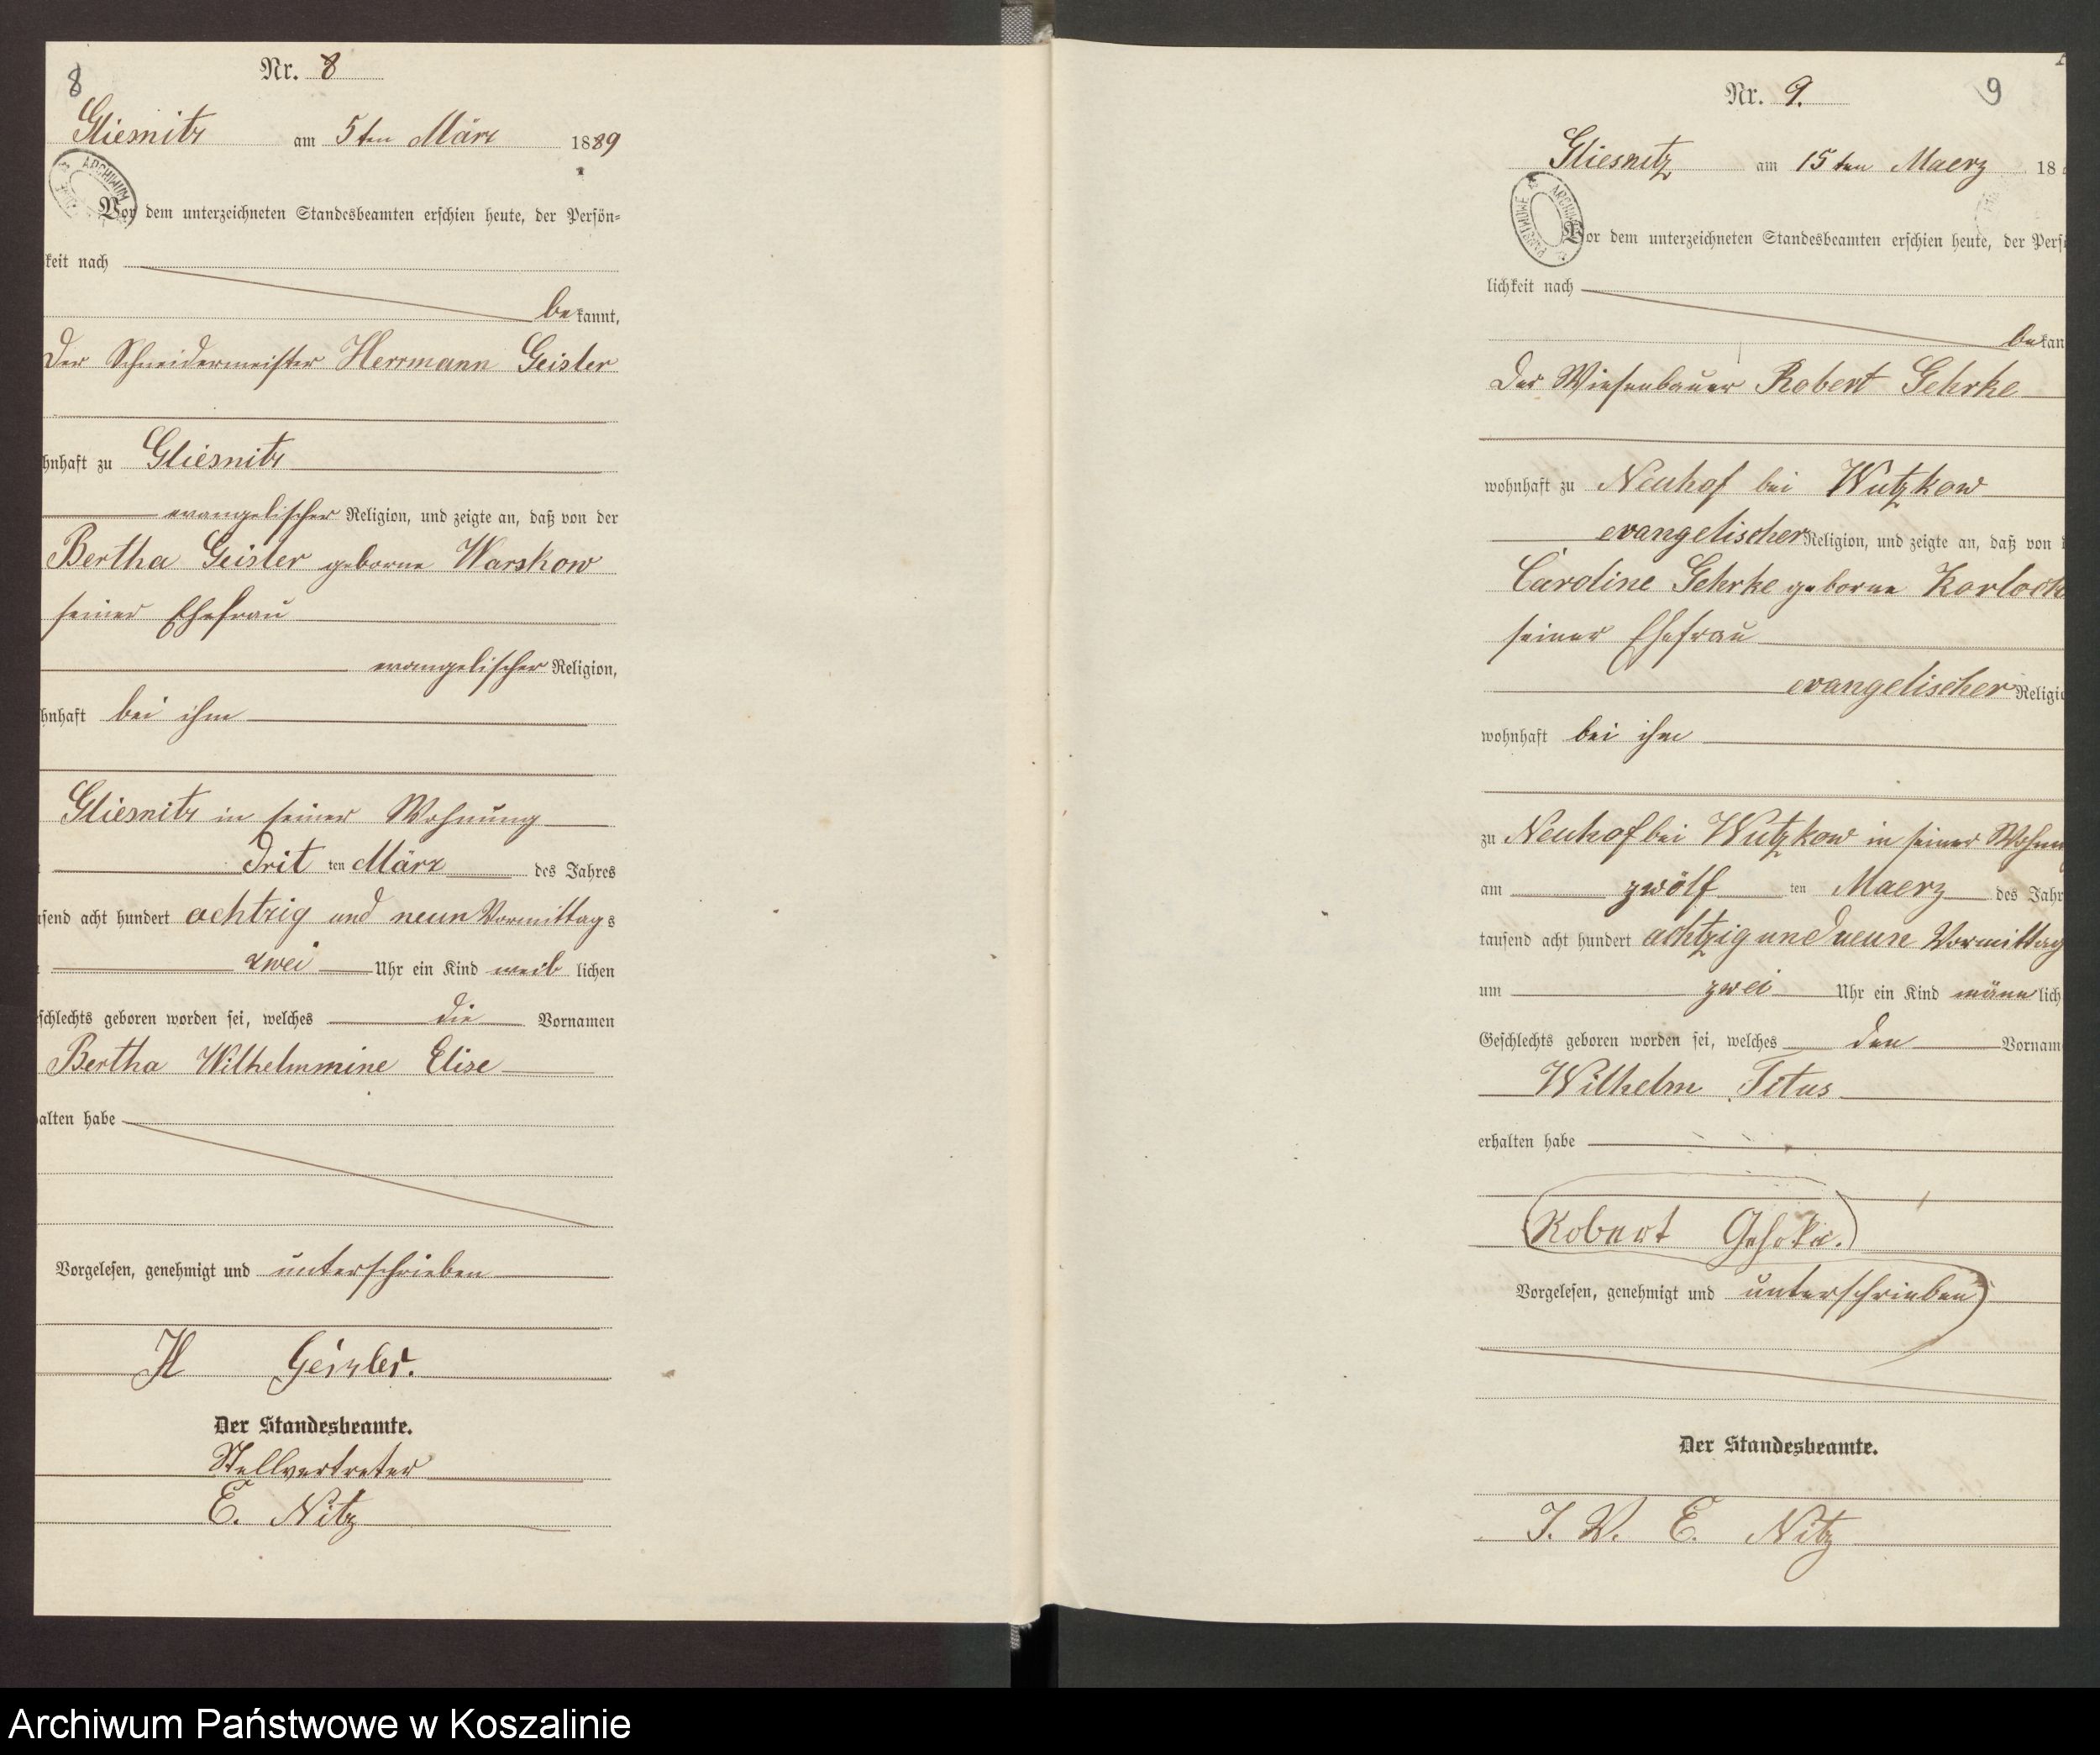 8
Nr. 8
Gliesnitz am 5ten März 1889
ARCHIWUM
Vor dem unterzeichneten Standesbeamten erschien heute, der Persön=
keit nach
bekannt,
der Schneidermeister Herrmann Geisler
hnhaft zu Gliesnitz
evangelischer Religion, und zeigte an, daß von der
Bertha Geisler geborne Warskow
seiner Ehefrau
evangelischer Religion,
hnhaft bei ihm
Gliesnitz in seiner Wohnung
drit ten März des Jahres
usend acht hundert achtzig und neun Vormittags
zwei Uhr ein Kind weib lichen
eschlechts geboren worden sei, welches die Vornamen
Bertha Wilhelmmine Elise
halten habe
Vorgelesen, genehmigt und unterschrieben
H Geisler.
Der Standesbeamte.
Stellvertreter
E. Nitz
Nr. 9. 9
Gliesnitz am 15ten Maerz 18
Vor dem unterzeichneten Standesbeamten erschien heute, der Pers
lichkeit nach
bekan
Der Wiesenbauer Robert Gehrke
wohnhaft zu Neuhof bei Wutzkow
evangelischer Religion, und zeigte an, daß von d
Caroline Gehrke geborne
seiner Ehefrau
evangelischer Religi
wohnhaft bei ihm
zu Neuhof bei Wutzkow in seiner Wohnung
am zwölf ten Maerz des Jahr
tausend acht hundert achtzig und neun Vormittag
um zwei Uhr ein Kind männ lich
Geschlechts geboren worden sei, welches den Vornam
Wilhelm Titus
erhalten habe
Robert Gehrke.
Vorgelesen, genehmigt und unterschrieben
Der Standesbeamte.
J. V. E. Nitz
Archiwum Państwowe w Koszalinie